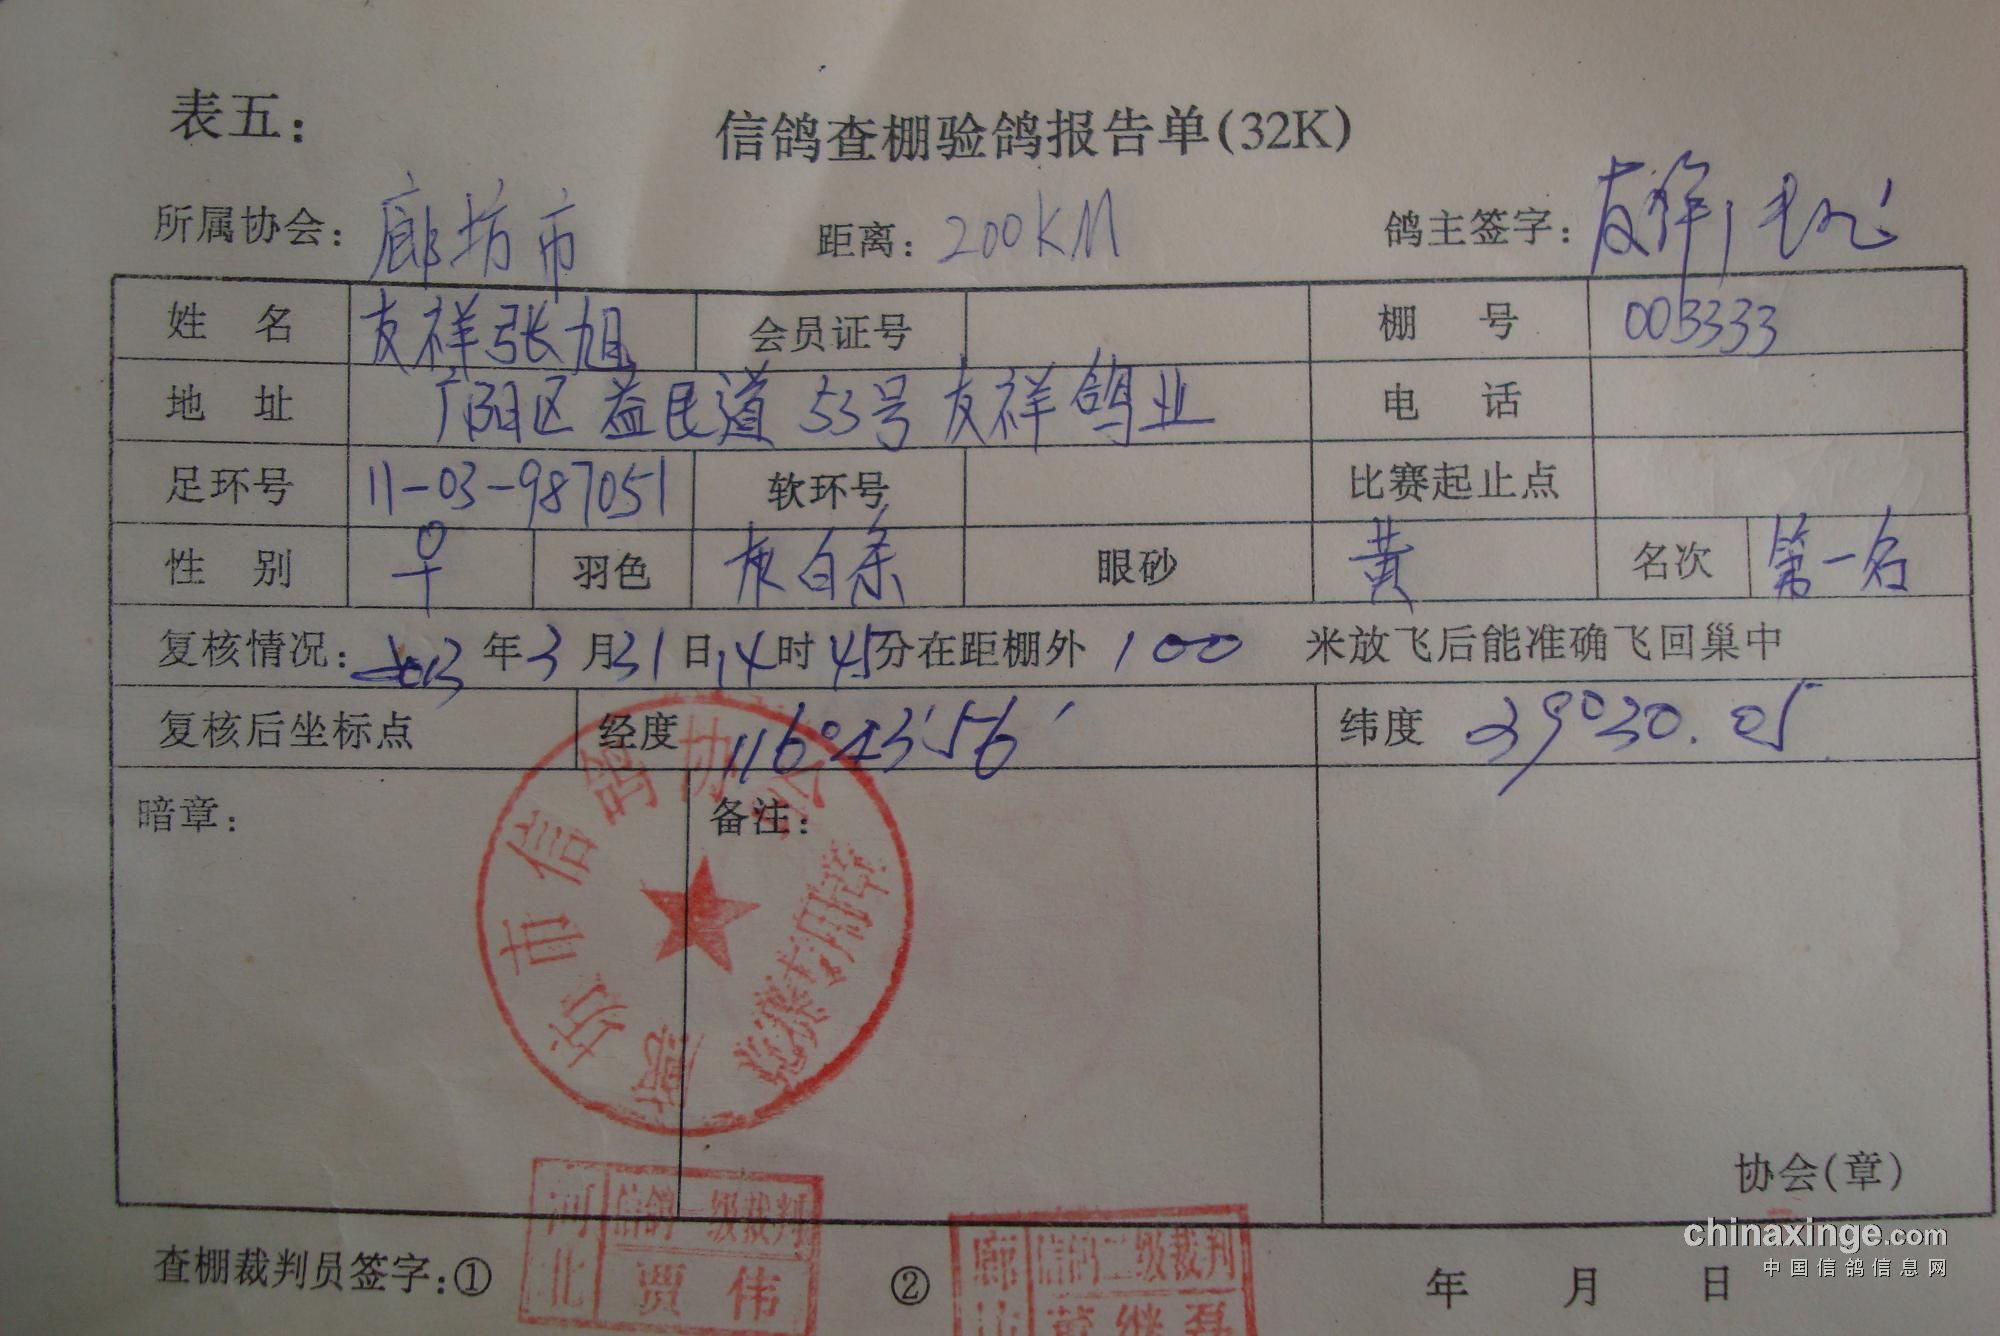 表五:
信鸽查棚验鸽报告单(32K)
所属协会: 廊坊市 距离: 200KM 鸽主签字: 友祥
姓 名 友祥张旭 会员证号 棚 号 003333
地 址 广阳区益民道53号友祥鸽业 电 话
足环号 11-03-987051 软环号 比赛起止点
性 别 ♀ 羽色 灰白条 眼砂 黄 名次 第一名
复核情况: 2013年3月31日14时45分在距棚外100米放飞后能准确飞回巢中
复核后坐标点 经度 116°43′56′ 纬度 39°30.05
暗章: 备注:
廊坊市信鸽协会
竞赛专用章
协会(章)
查棚裁判员签字:① ② 年 月 日
河北 信鸽一级裁判 贾伟
廊坊 信鸽二级裁判 董继磊
chinaxinge.com
中国信鸽信息网